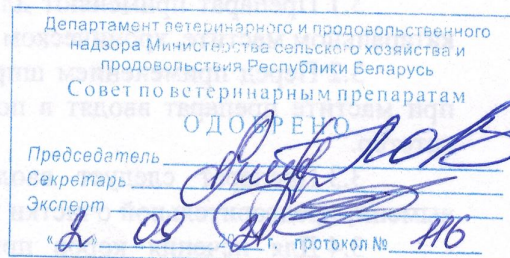 Департамент ветеринарного и продовольственного
надзора Министерства сельского хозяйства и
продовольствия Республики Беларусь
Совет по ветеринарным препаратам
ОДОБРЕНО
Председатель
Секретарь
Эксперт
« 2 » 09 20 г. протокол № 116